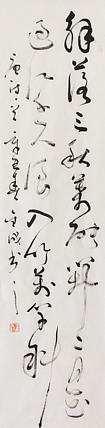 解落三秋葉能開二月花
過江千尺浪入竹萬竿斜
唐詩書